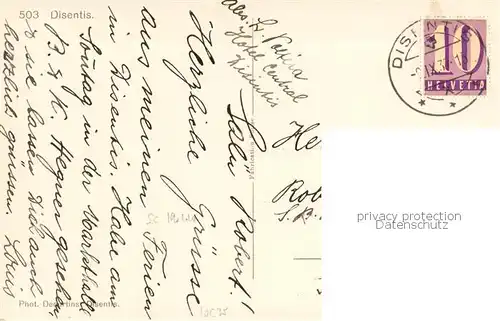 503 Disentis.
Salü Robert!
Herzliche Grüsse
aus meinen Ferien
in Disentis. Habe am
Sonntag in der Markthalle
B. & K. Hegner gesehen
& sie lassen Dich auch
herzlich grüssen. Louis
Phot. Disentis.
abs. L.
Hotel Central
Disentis
Robe
S.B.
DISENTIS
10
HELVETIA
privacy protection
Datenschutz